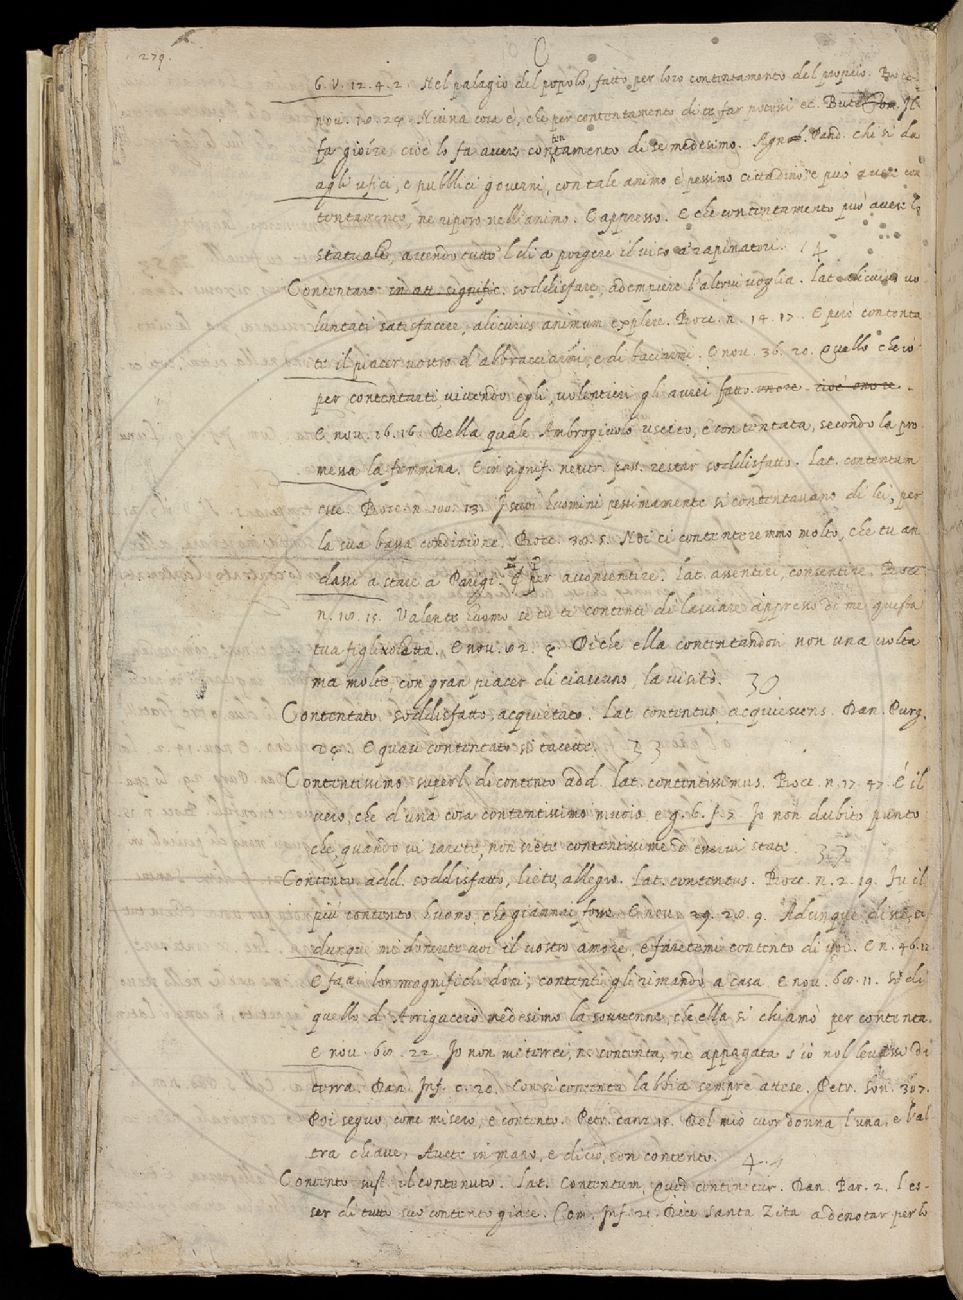 279.
C
G. V. 12. 4. 2. Nel palagio del popolo, fatto per loro contentamento del popolo. Bocc.
nov. 10. 24. Niuna cosa è, che per contentamento di te far potessi etc. But. Com. Jl
fa gioire cioè lo fa avere contentamento di se medesimo. Agnol. Pand. chi si da
agli ufici, e pubblici governi, con tale animo è pessimo cittadino e può avere con
tentamento, ne riposo nell'animo. E appresso. E che contentamento può avere lo
statuale, avendo tutto 'l dì a porgere il viso a rapinatori. 14
Contentare in att. signific. soddisfare, adempiere l'altrui voglia. lat. alicuius vo
luntati satisfacere, alicuius animum explere. Bocc. n. 14. 17. E però contenta
te il piacer vostro d'abbracciarmi, e di baciarmi. E nov. 36. 20. Quello che io
per contentarti, vivendo egli, volentieri gli averei fatto onore cioè onore.
E nov. 16. 16. Della quale Ambrogiuolo uscito, e contentata, secondo la pro
messa la femmina. E in signif. neutr. pass. restar soddisfatto. Lat. contentum
esse. Bocc. n. 100. 13. J suoi huomini pessimamente si contentavano di lei, per
la sua bassa condizione. Bocc. 30. 5. Noi ci contenteremmo molto, che tu an
dassi a stare a Parigi. E per acconsentire. lat. assentiri, consentire. Bocc
n. 10. 15. Valente huomo se tu ti contenti di lasciare appresso di me questa
tua figlivoletta. E nov. 92. Di che ella contentandosi non una volta
ma molte, con gran piacer di ciascuno, la visitò. 30
Contentato. soddisfatto, acquietato. Lat contentus, acquiescens. Dan. Purg.
24. E quasi contentato si tacette. 33
Contentissimo superl. di contento add. lat. contentissimus. Bocc. n. 77. 47. È il
vero, che d'una cosa contentissimo muoio e g. 6. f. 7. Jo non dubito punto
che, quando vi sarete, non siete contentissime d'esservi state. 37
Contento add. soddisfatto, lieto, allegro. Lat. contentus. Bocc. n. 2. 19. Fu il
più contento huomo, che giammai fosse. E nov. 29. 20. 9. Adunque disse, a
dunque mi donerete voi il vostro amore, e faretemi contento di voi. E n. 46. 12
E fatti lor magnifichi doni, contenti gli rimandò a casa. E nov. 60. 11. sì di
quello d'Arriguccio medesimo la sovvenne, che ella si chiamò per contenta.
E nov. 60. 22. Jo non mi terrei, ne contenta, ne appagata s'io nol levassi di
terra. Dan. Inf. c. 20. Con sì contenta labbia sempre attese. Petr. Son. 307.
Poi seguo, come misero, e contento. Petr. canz. 15. Del mio cuor donna l'una, e l'al
tra chiave, Avete in mano, e di ciò, son contento. 4
Contento sust. il contenuto. Lat. Contentum, Quod continetur. Dan. Par. 2. l'es-
ser di tutto suo contento giace. Com. Inf. 21. Dice Santa Zita a denotar per lo